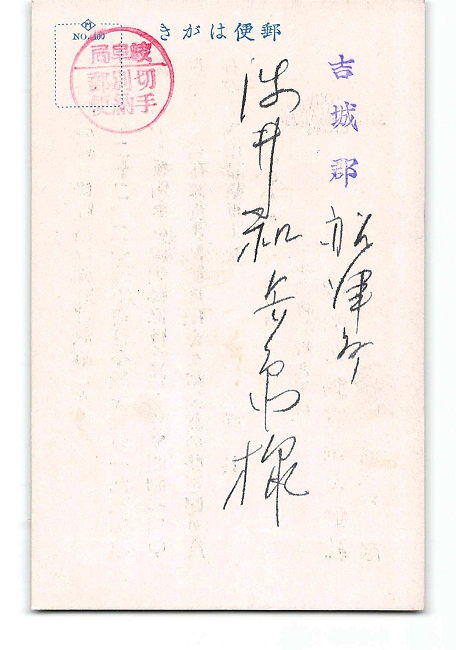 郵便はがき
NO. 100
岐阜局
切手別納郵便
吉城郡
船津町
浅井和兵衛様